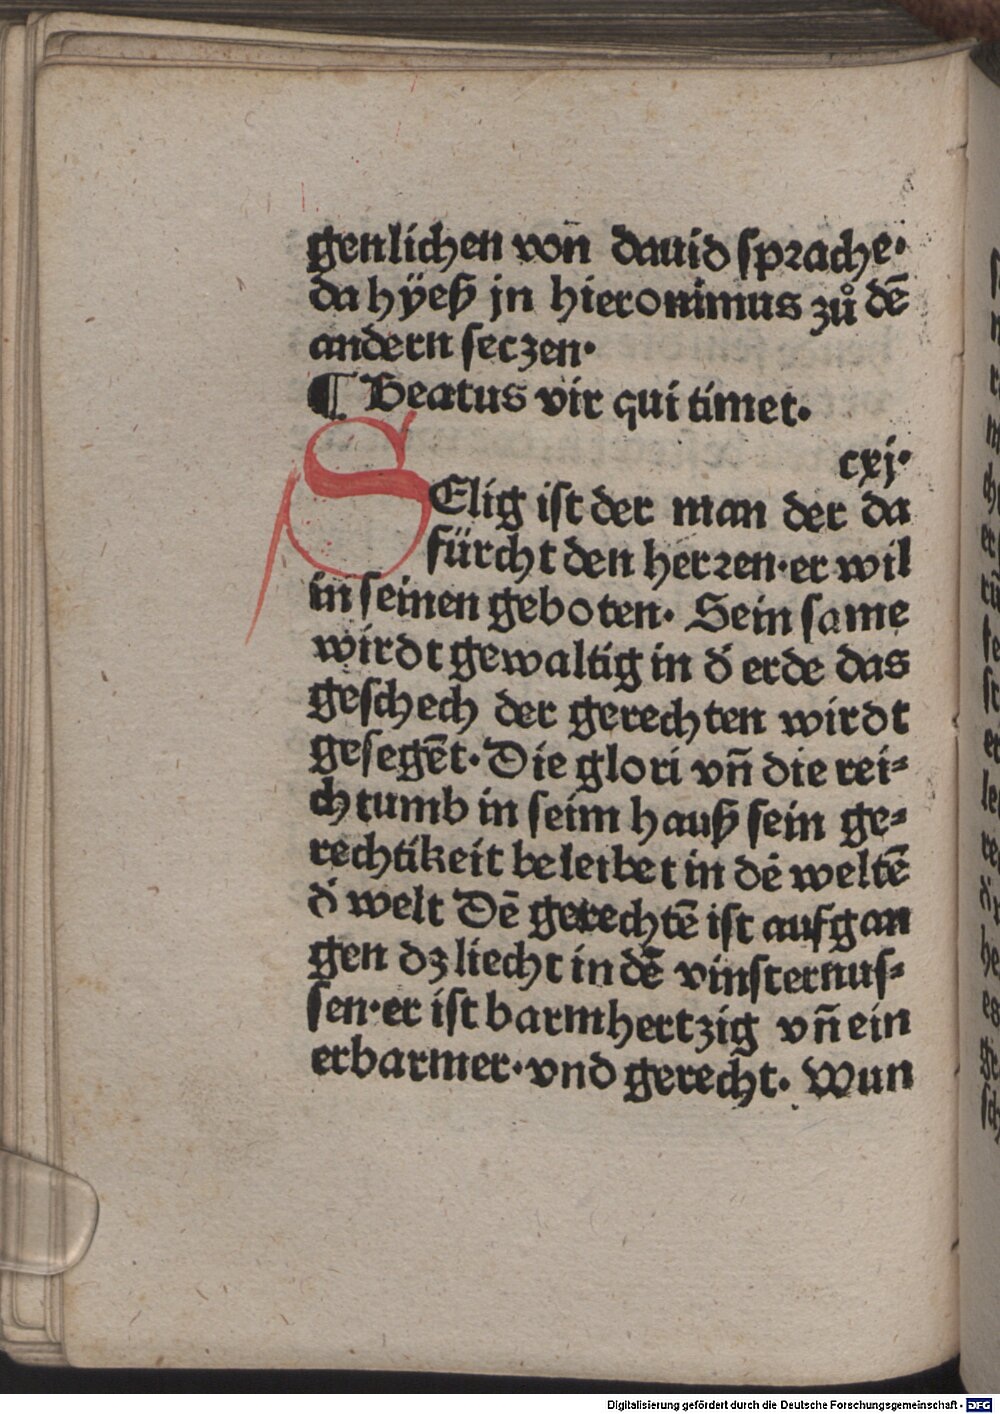 genlichen von̄ dauid sprache·
da hÿeß jn hieronimus zů dē
andern seczen·
¶ Beatus vir qui timet·
cxj·
SElig ist der man der da
fürcht den herren·er wil
in seinen geboten· Sein same
wirdt gewaltig in d̛ erde das
geschech der gerechten wirdt
gesegēt· Die glori vn̄ die rei⸗
chtumb in seim hauß sein ge⸗
rechtikeit beleibet in dē weltē
d̛ welt Dē gerechtē ist aufgan
gen dz liecht in dē vinsternus⸗
sen·er ist barmhertzig vn̄ ein
erbarmer·vnd gerecht. Wun
Digitalisierung gefördert durch die Deutsche Forschungsgemeinschaft - DFG